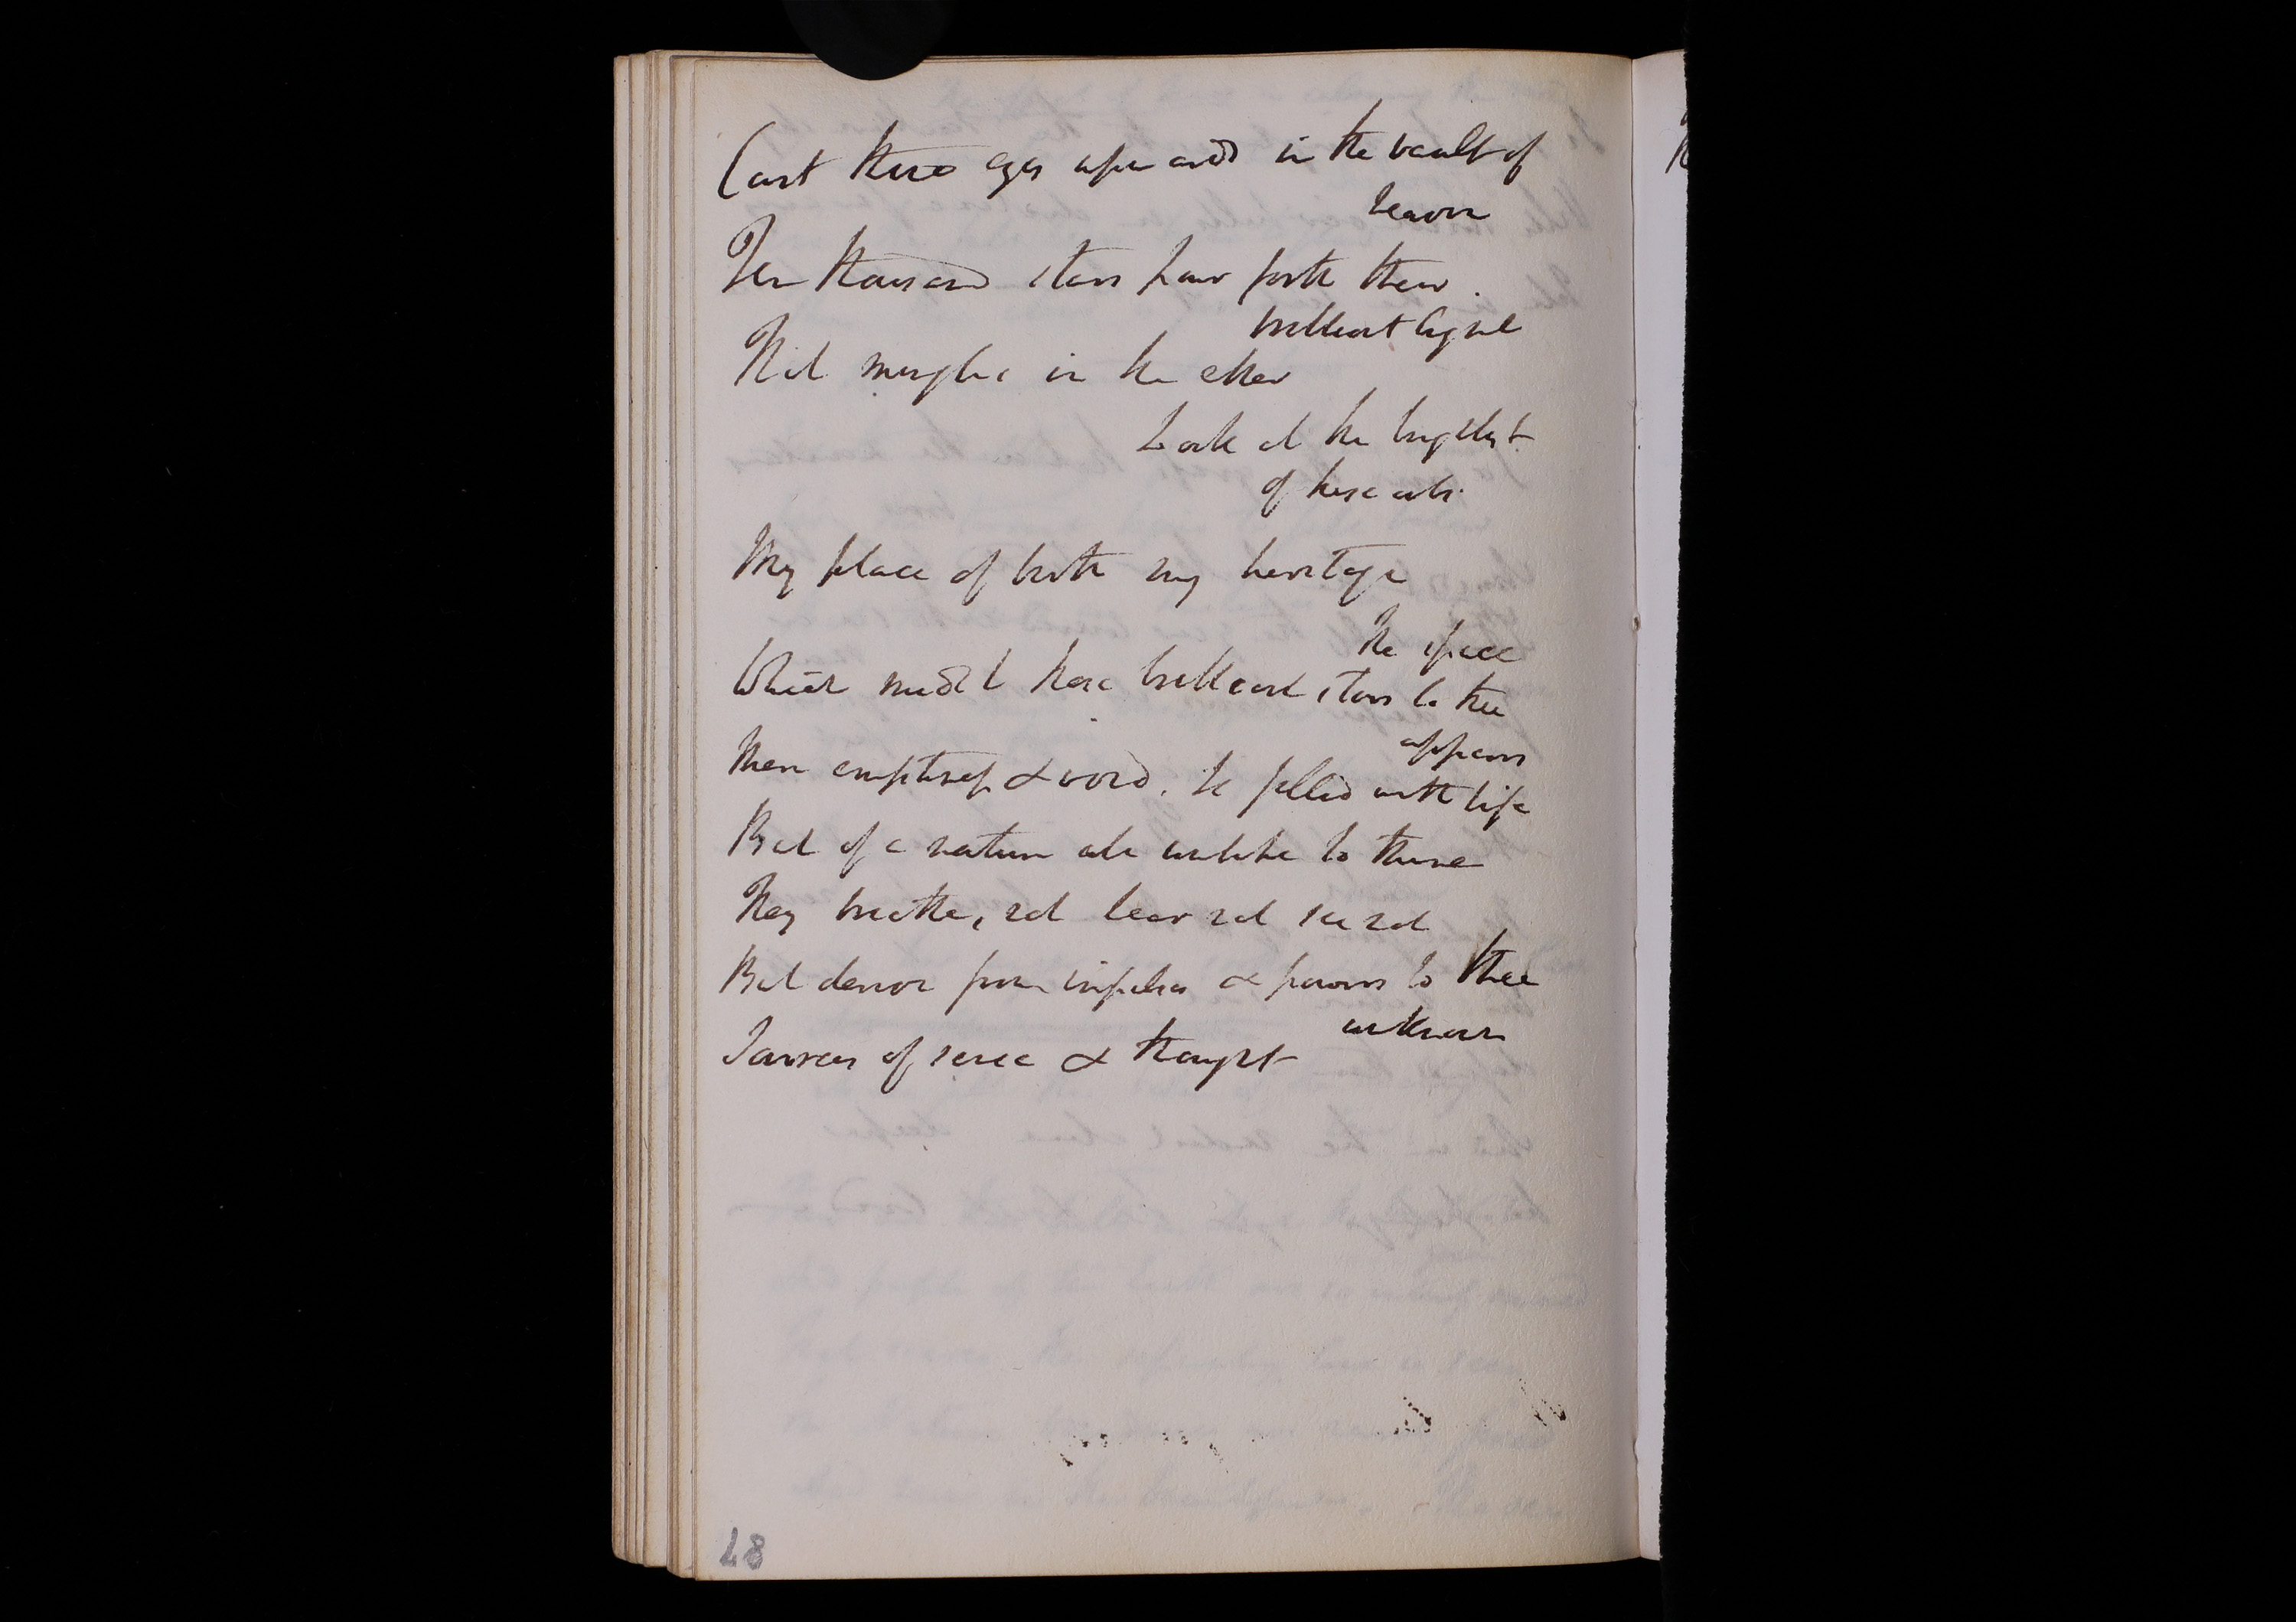 Cast thine eyes upwards in the vault of
heaven
Ten thousand stars pour forth their
brilliant light
That mingles in the ether
Look at the brightest
of these orbs.
My place of birth my heritage
The space
Which midst these brilliant stars to thee
appears
Mere emptiness & void. Is filled with life
But of a nature all unlike to thine
They breathe, not hear not see not
But derive from impulses & powers to thee
unknown
Sources of sense & thought
48